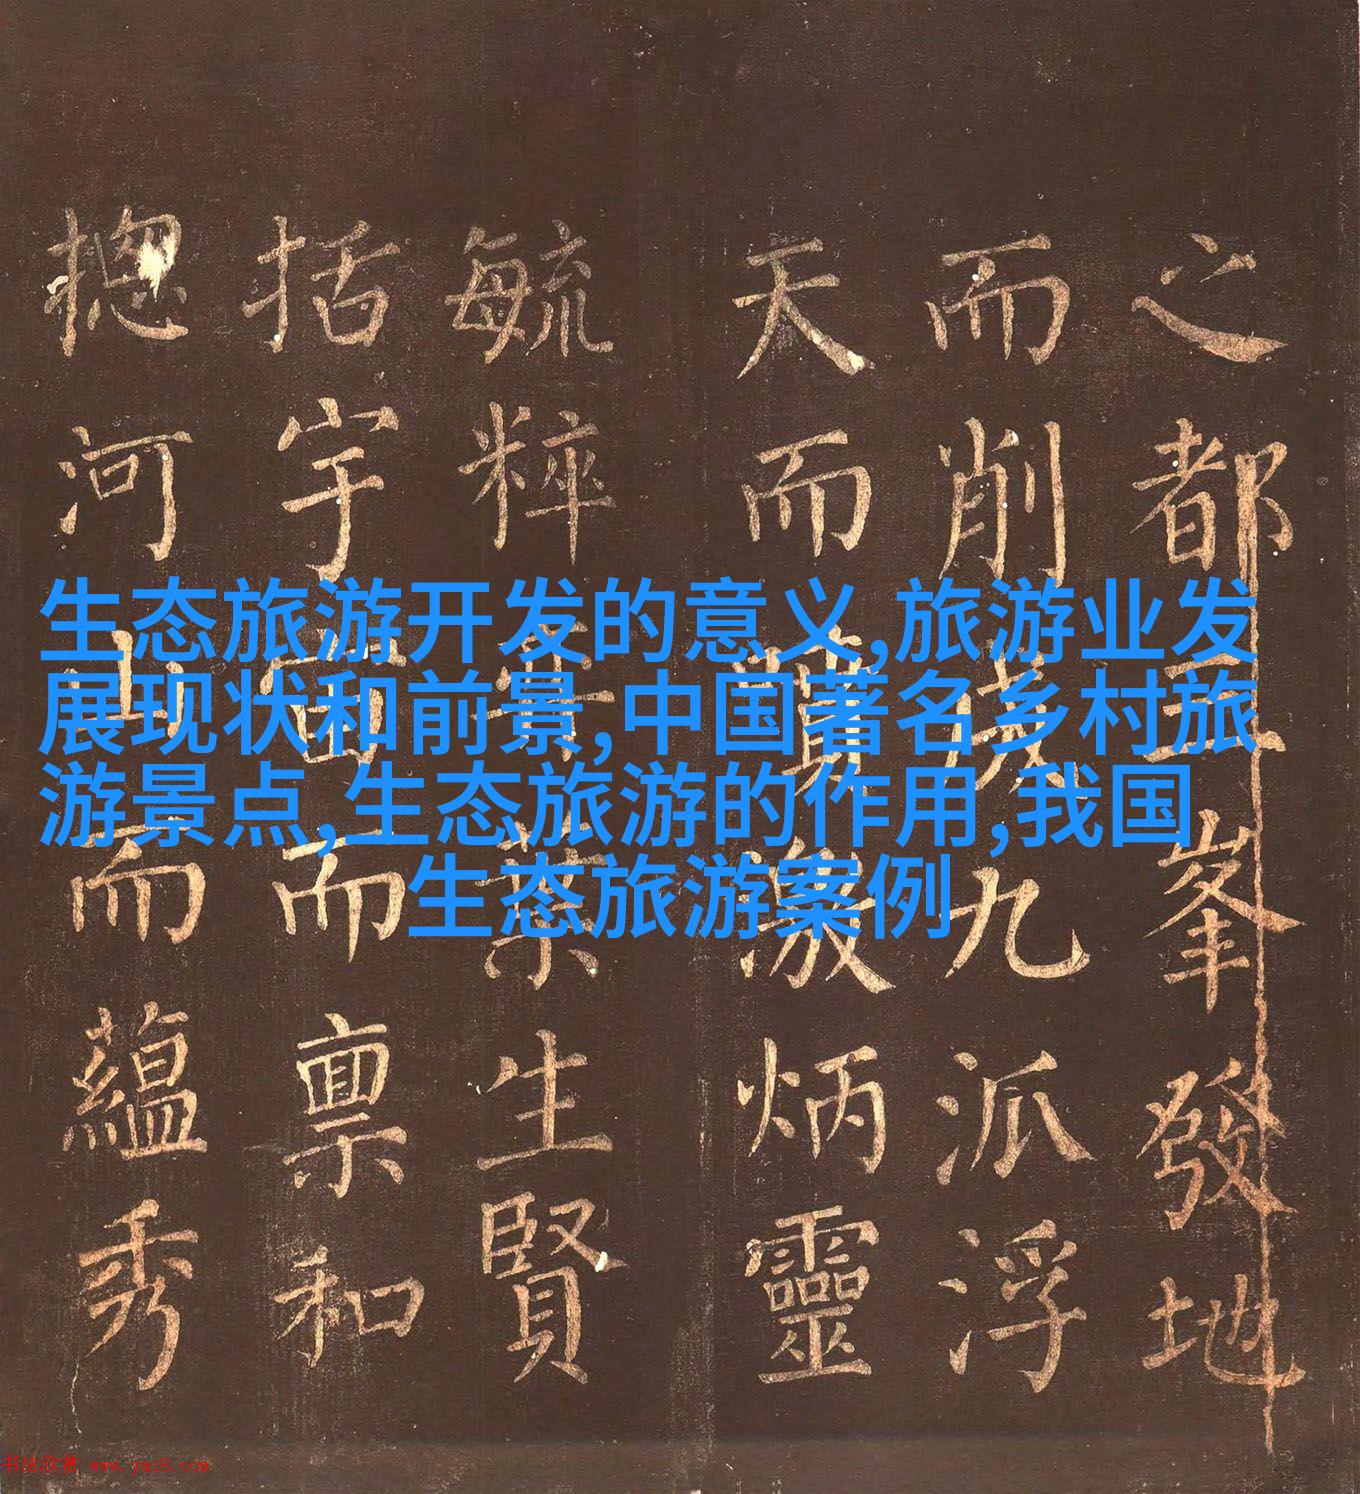 生态旅游开发的意义,旅游业发
展现状和前景,中国著名乡村旅
游景点,生态旅游的作用,我国
生态旅游案例
之都五峯發地
而削成九派浮
天而激炳靈
毓粹生賢
括宇宙而稟和
揔河山而蘊秀
书法欣赏 www.yac8.com